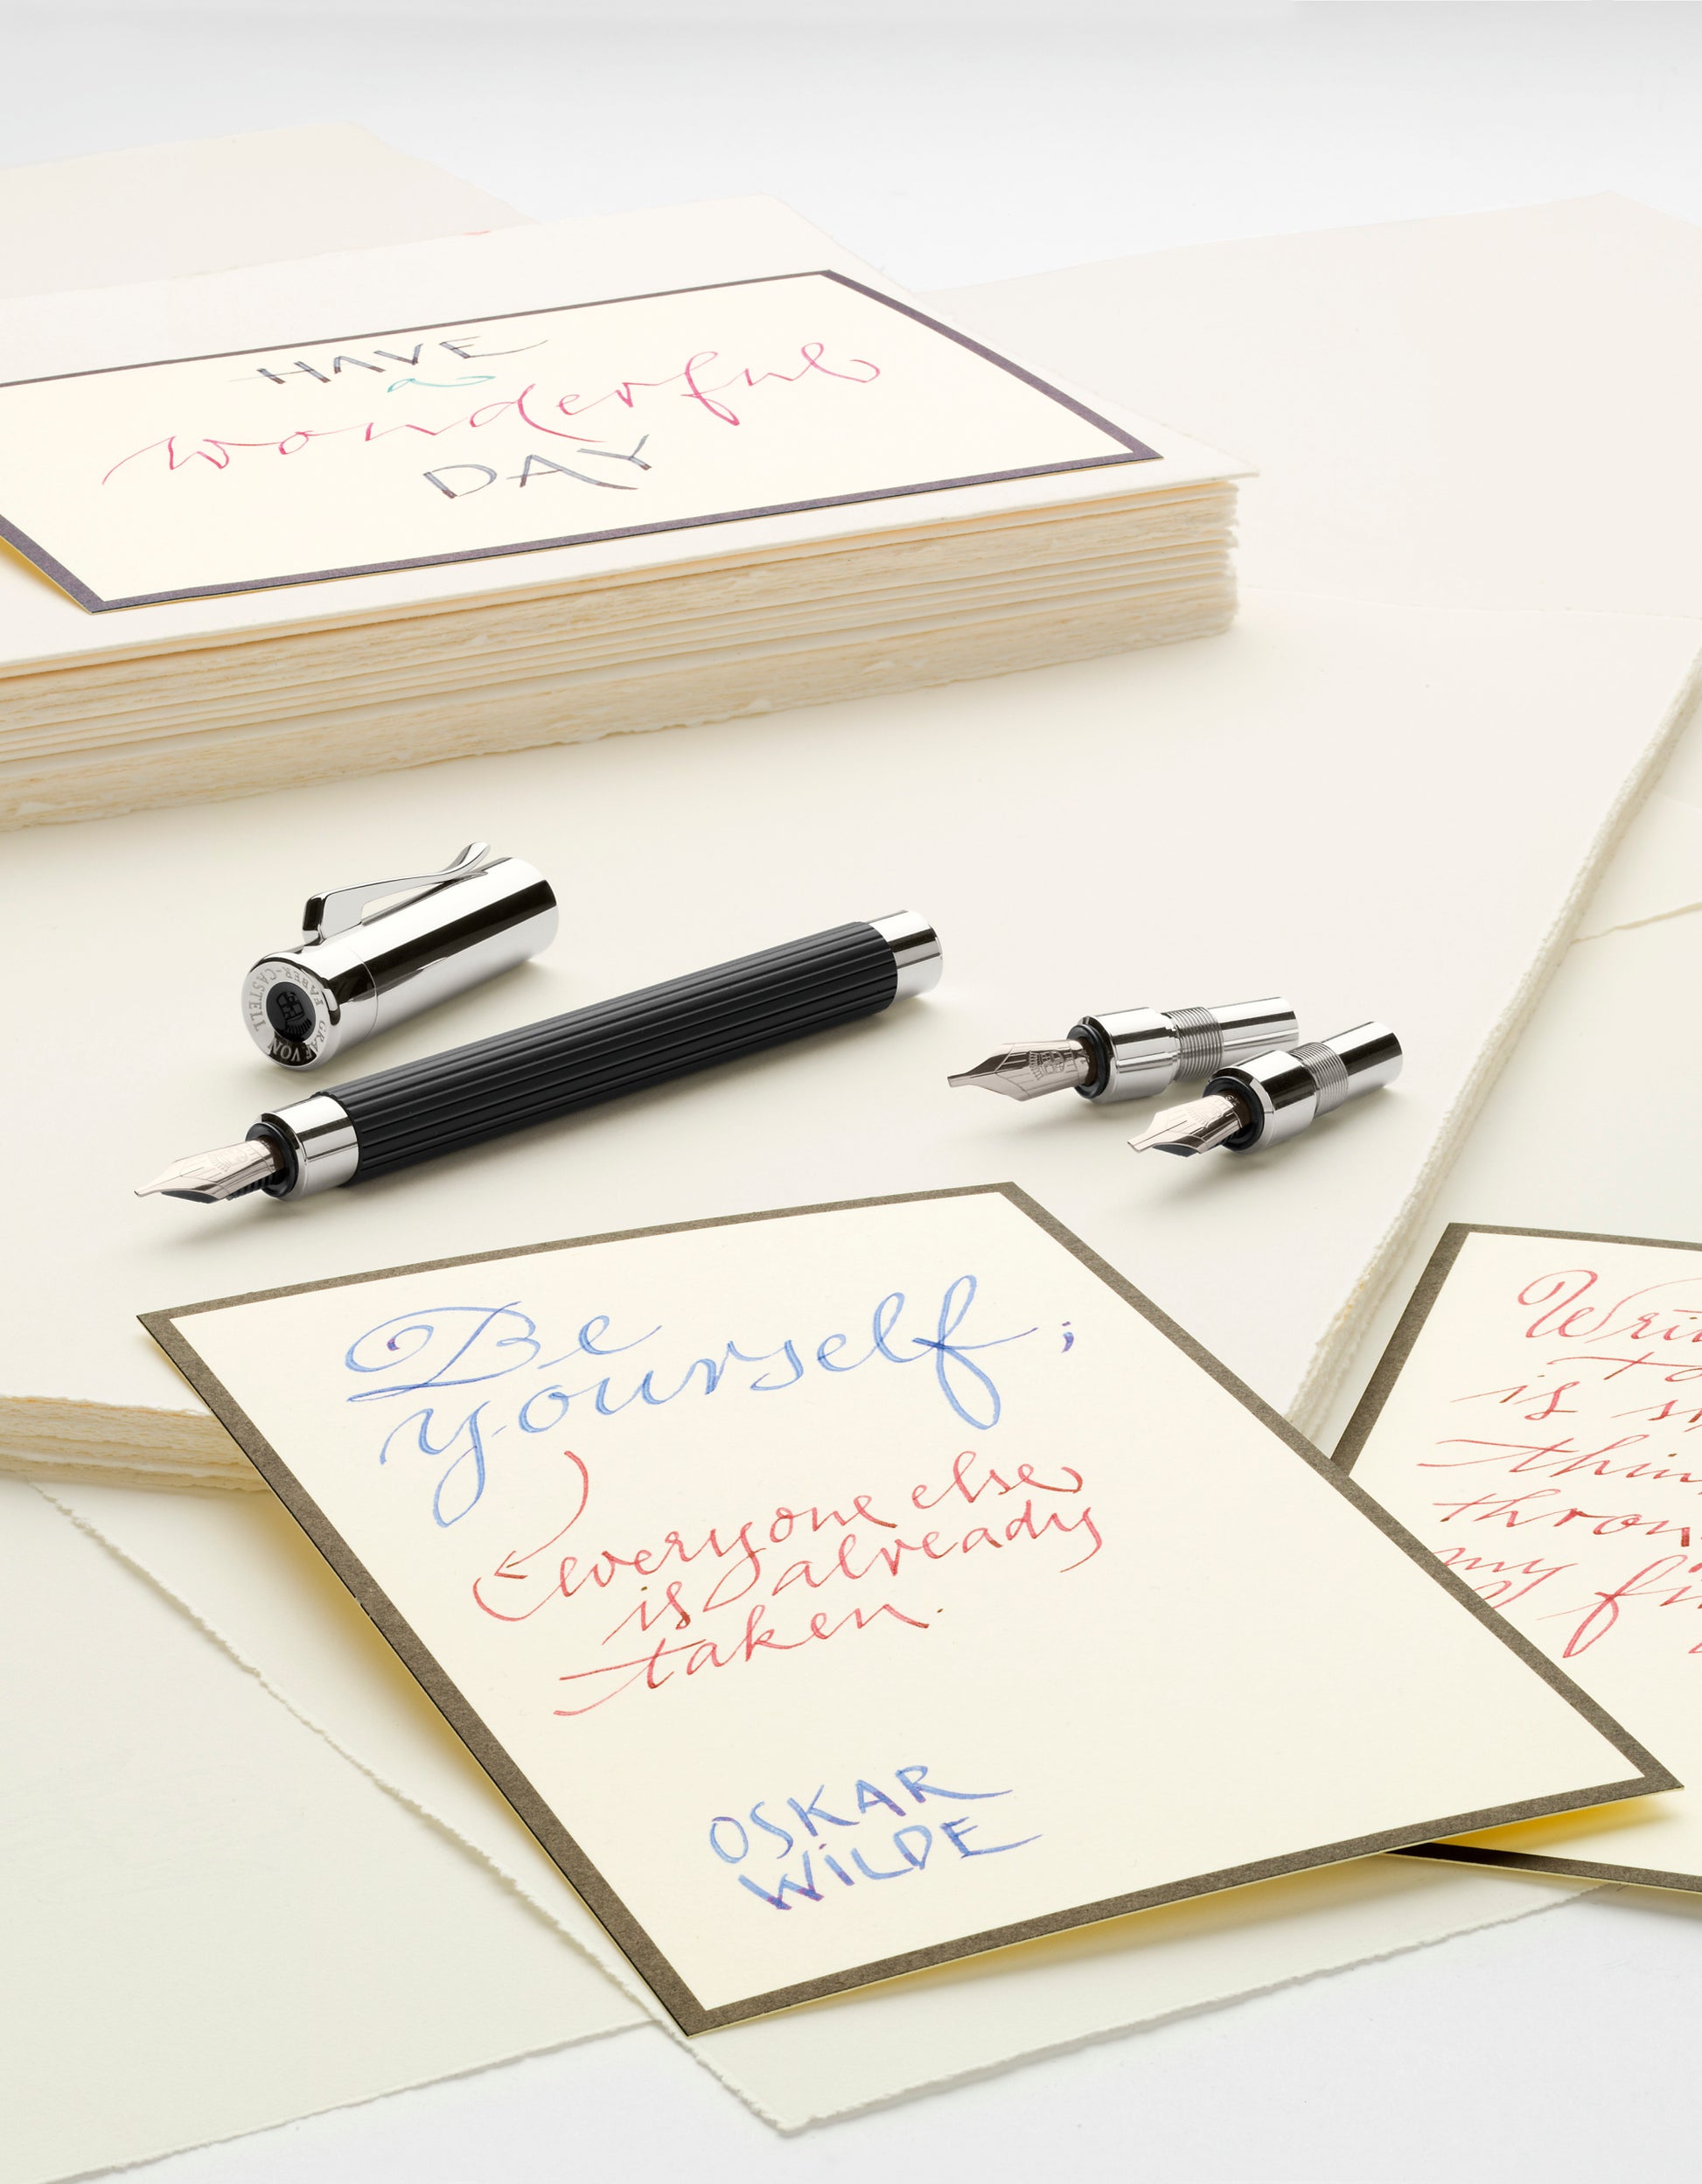 HAVE
a
wonderful
DAY
GRAF VON FABER-CASTELL
Be
yourself;
everyone else
is already
taken.
OSKAR
WiLDE
is
my